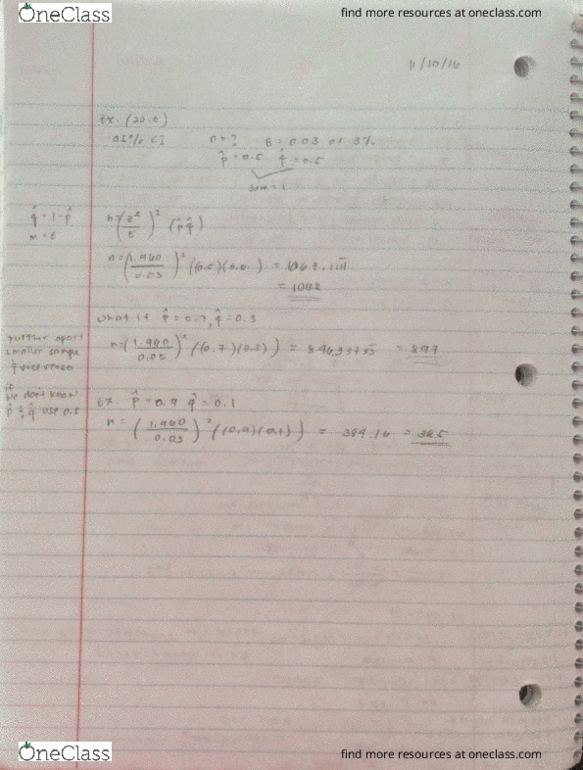 OneClass
find more resources at oneclass.com
11/10/16
Ex. (20.6)
95% CI n = ? E = 0.03 or 3%
p̂ = 0.5 q̂ = 0.5
sum = 1
q̂ = 1 - p̂
m = E
n = (z*/E)² (p̂q̂)
n = (1.960/0.03)² (0.5)(0.5) = 1067.111
= 1068
what if p̂ = 0.7, q̂ = 0.3
further apart
smaller sample
vice versa
n = (1.960/0.03)² ((0.7)(0.3)) = 896.3733 = 897
if
we don't know
p̂ & q̂ use 0.5
Ex. p̂ = 0.9 q̂ = 0.1
n = (1.960/0.03)² ((0.9)(0.1)) = 384.16 = 385
OneClass
find more resources at oneclass.com